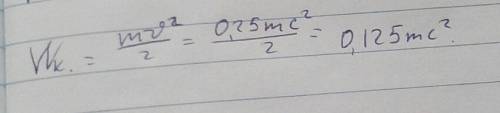 Wк. = mv²/2 = 0,25mc²/2 = 0,125mc².